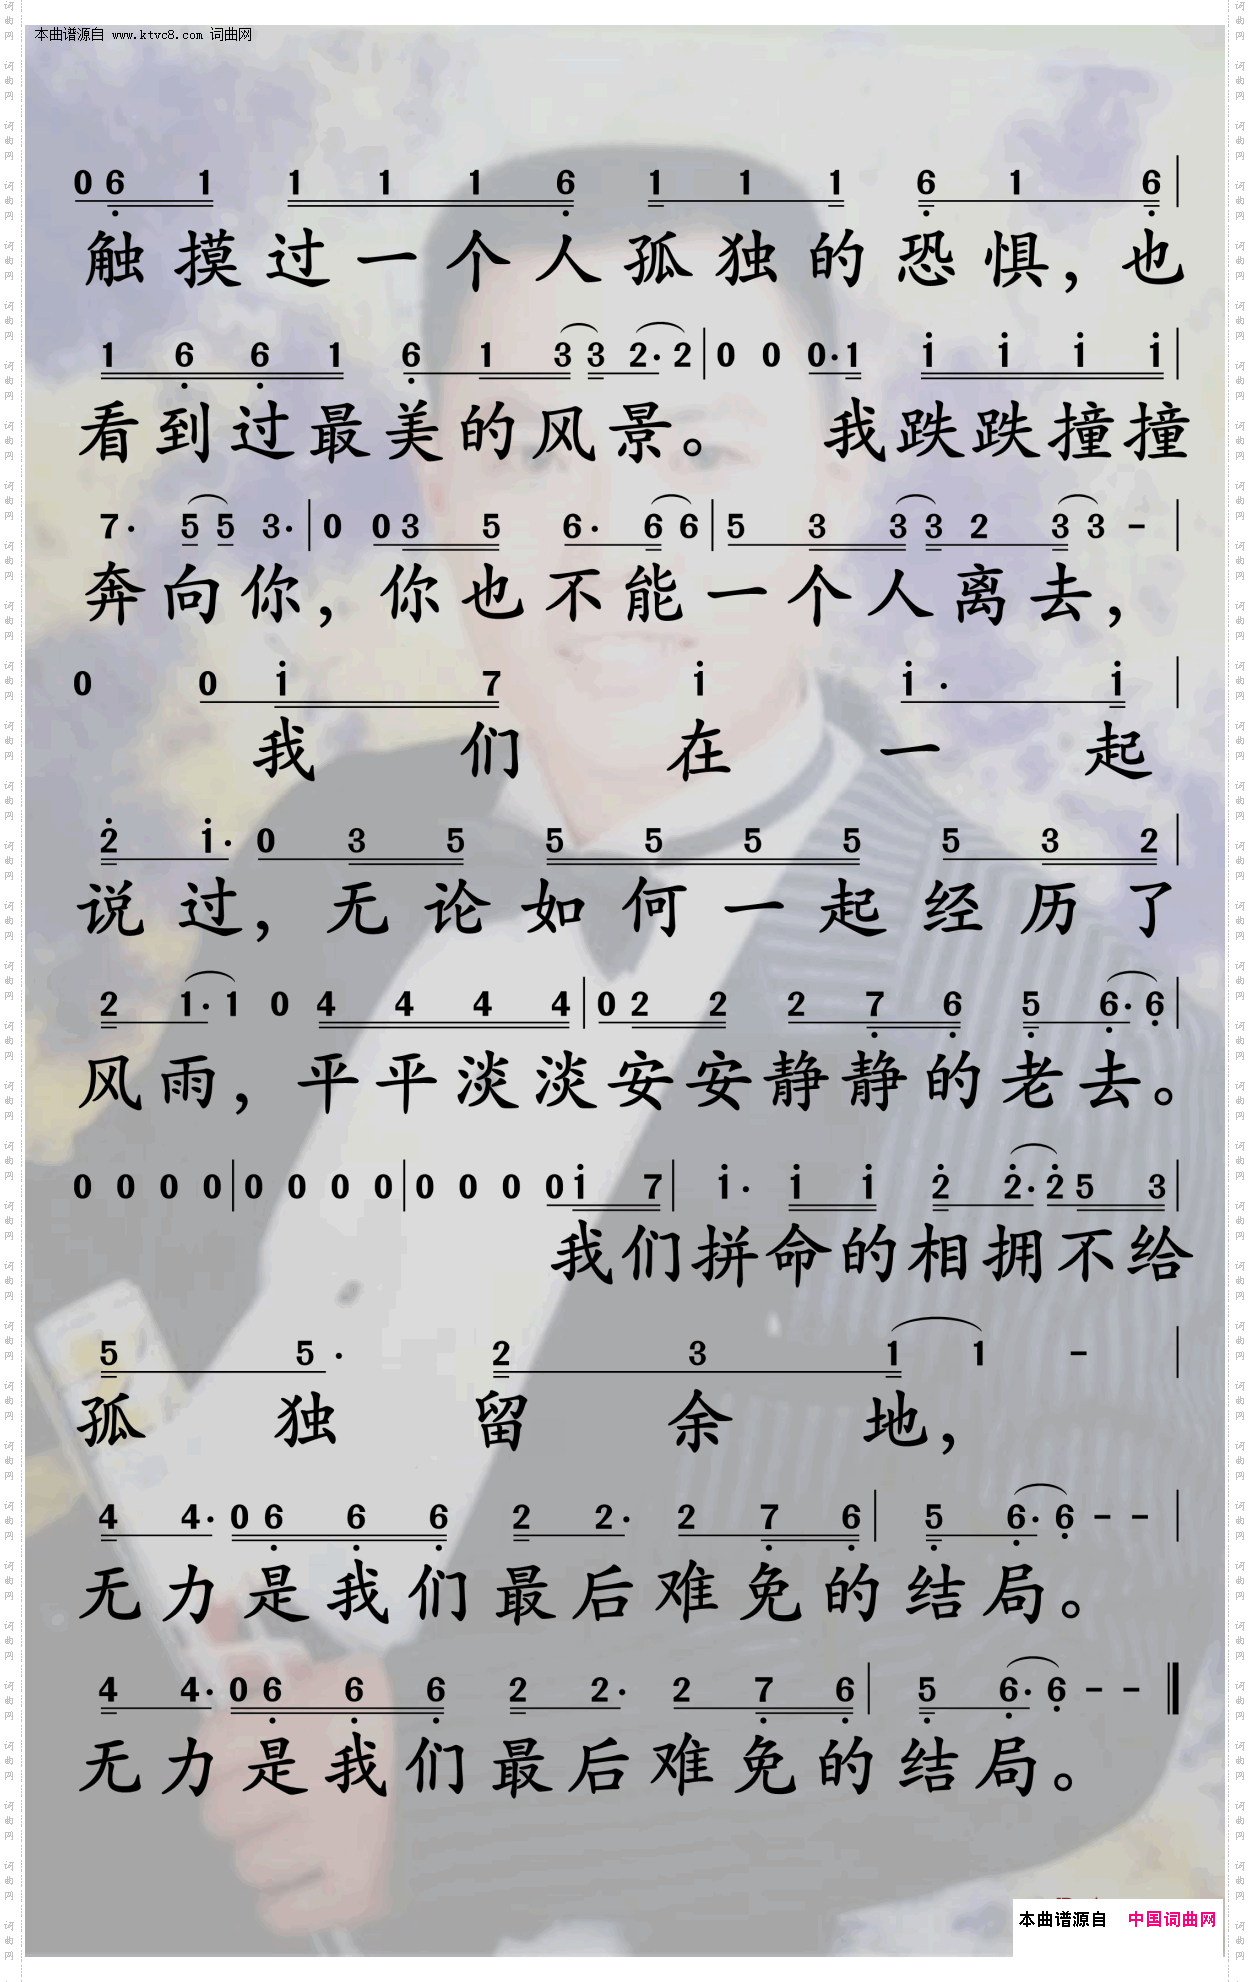 本曲谱源自 www.ktvc8.com 词曲网
0 6 1 1 1 1 6 1 1 1 6 1 6 |
触摸过一个人孤独的恐惧，也
1 6 6 1 6 1 3 3 2· 2 | 0 0 0· 1 i i i i |
看到过最美的风景。 我跌跌撞撞
7· 5 5 3· | 0 0 3 5 6· 6 6 | 5 3 3 3 2 3 3 - |
奔向你，你也不能一个人离去，
0 0 i 7 i i· i |
我们在一起
2 i· 0 3 5 5 5 5 5 5 3 2 |
说过，无论如何一起经历了
2 1· 1 0 4 4 4 4 | 0 2 2 2 7 6 5 6· 6 |
风雨，平平淡淡安安静静的老去。
0 0 0 0 | 0 0 0 0 | 0 0 0 0 i 7 | i· i i 2 2· 2 5 3 |
我们拼命的相拥不给
5 5· 2 3 1 1 - |
孤独留余地，
4 4· 0 6 6 6 2 2· 2 7 6 | 5 6· 6 - - |
无力是我们最后难免的结局。
4 4· 0 6 6 6 2 2· 2 7 6 | 5 6· 6 - - ‖
无力是我们最后难免的结局。
本曲谱源自 中国词曲网